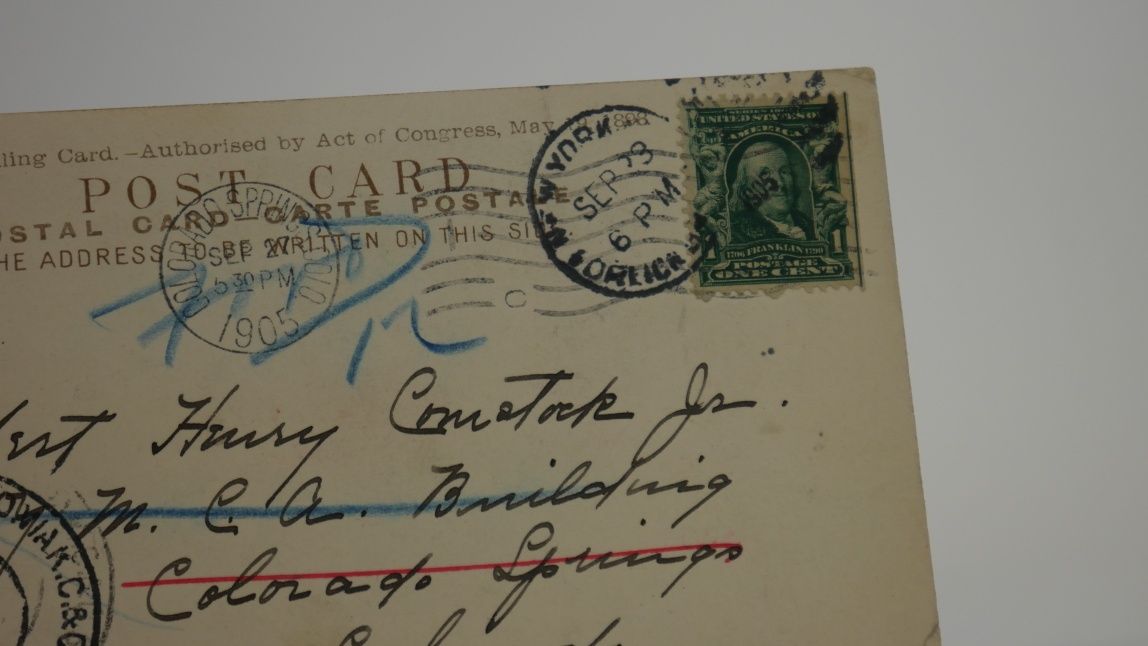 ling Card.—Authorised by Act of Congress, May 1898
POST CARD
OSTAL CARD—CARTE POSTALE
HE ADDRESS TO BE WRITTEN ON THIS SI
COLORADO SPRINGS
SEP 27
5 30 PM
1905
COLO
NEW YORK
SEP 23
6 PM
1905
SERIES
UNITED STATES OF
AMERICA
1706 FRANKLIN 1790
1 1
POSTAGE
ONE CENT
C
ert Henry Comstock Jr.
M. C. A. Building
Colorado Springs
K.C.&